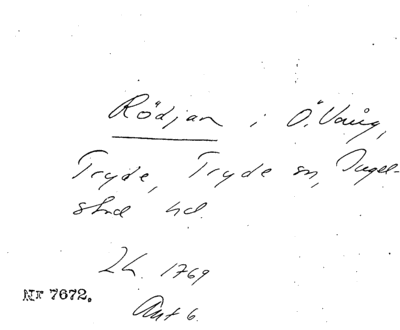 Rödjan i Ö. Vång,
Tryde, Tryde sn, Ingel-
stad hd.
Lh. 1769
Akt 6.
Nr 7672.